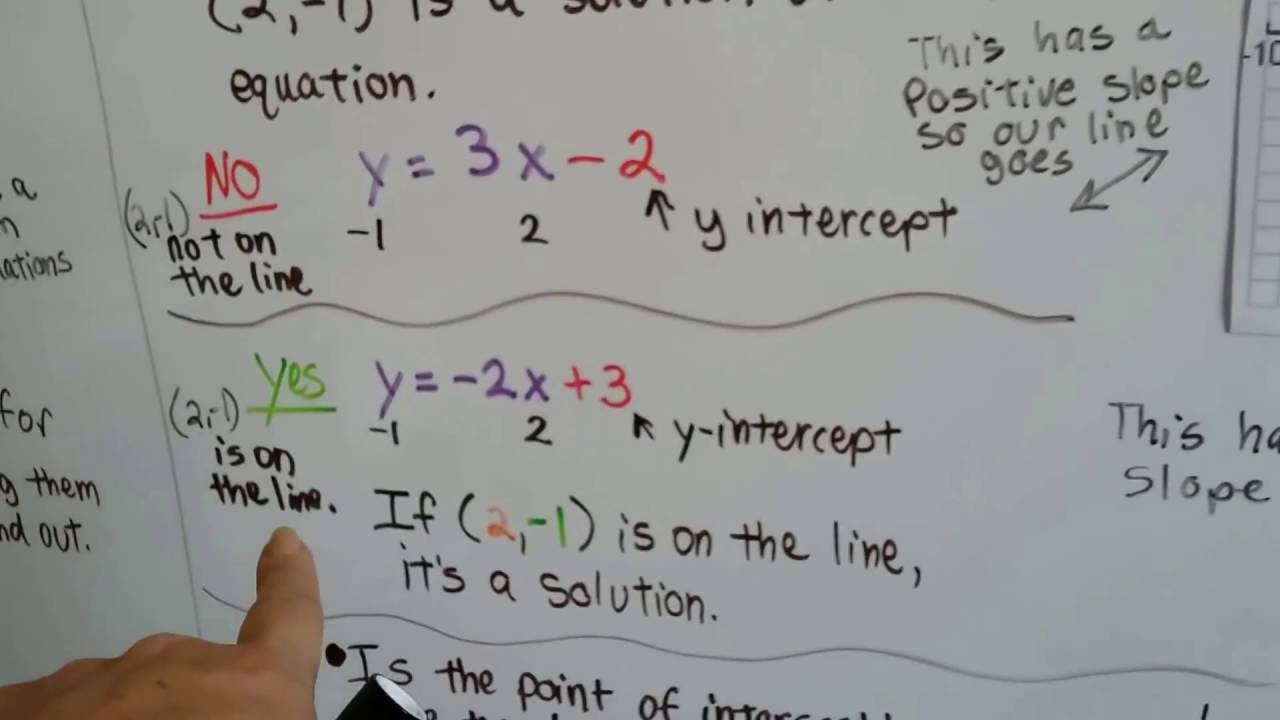 (2,-1) is a solution
equation.
This has a
positive slope
so our line
goes
-10
NO
y = 3x - 2
(2,-1)
not on
the line
-1 2
y intercept
a
ations
Yes
y = -2x + 3
(2,-1)
is on
the line.
-1 2
y-intercept
If (2,-1) is on the line,
it's a solution.
for
g them
nd out.
This ha
Slope
• Is the point of intersect